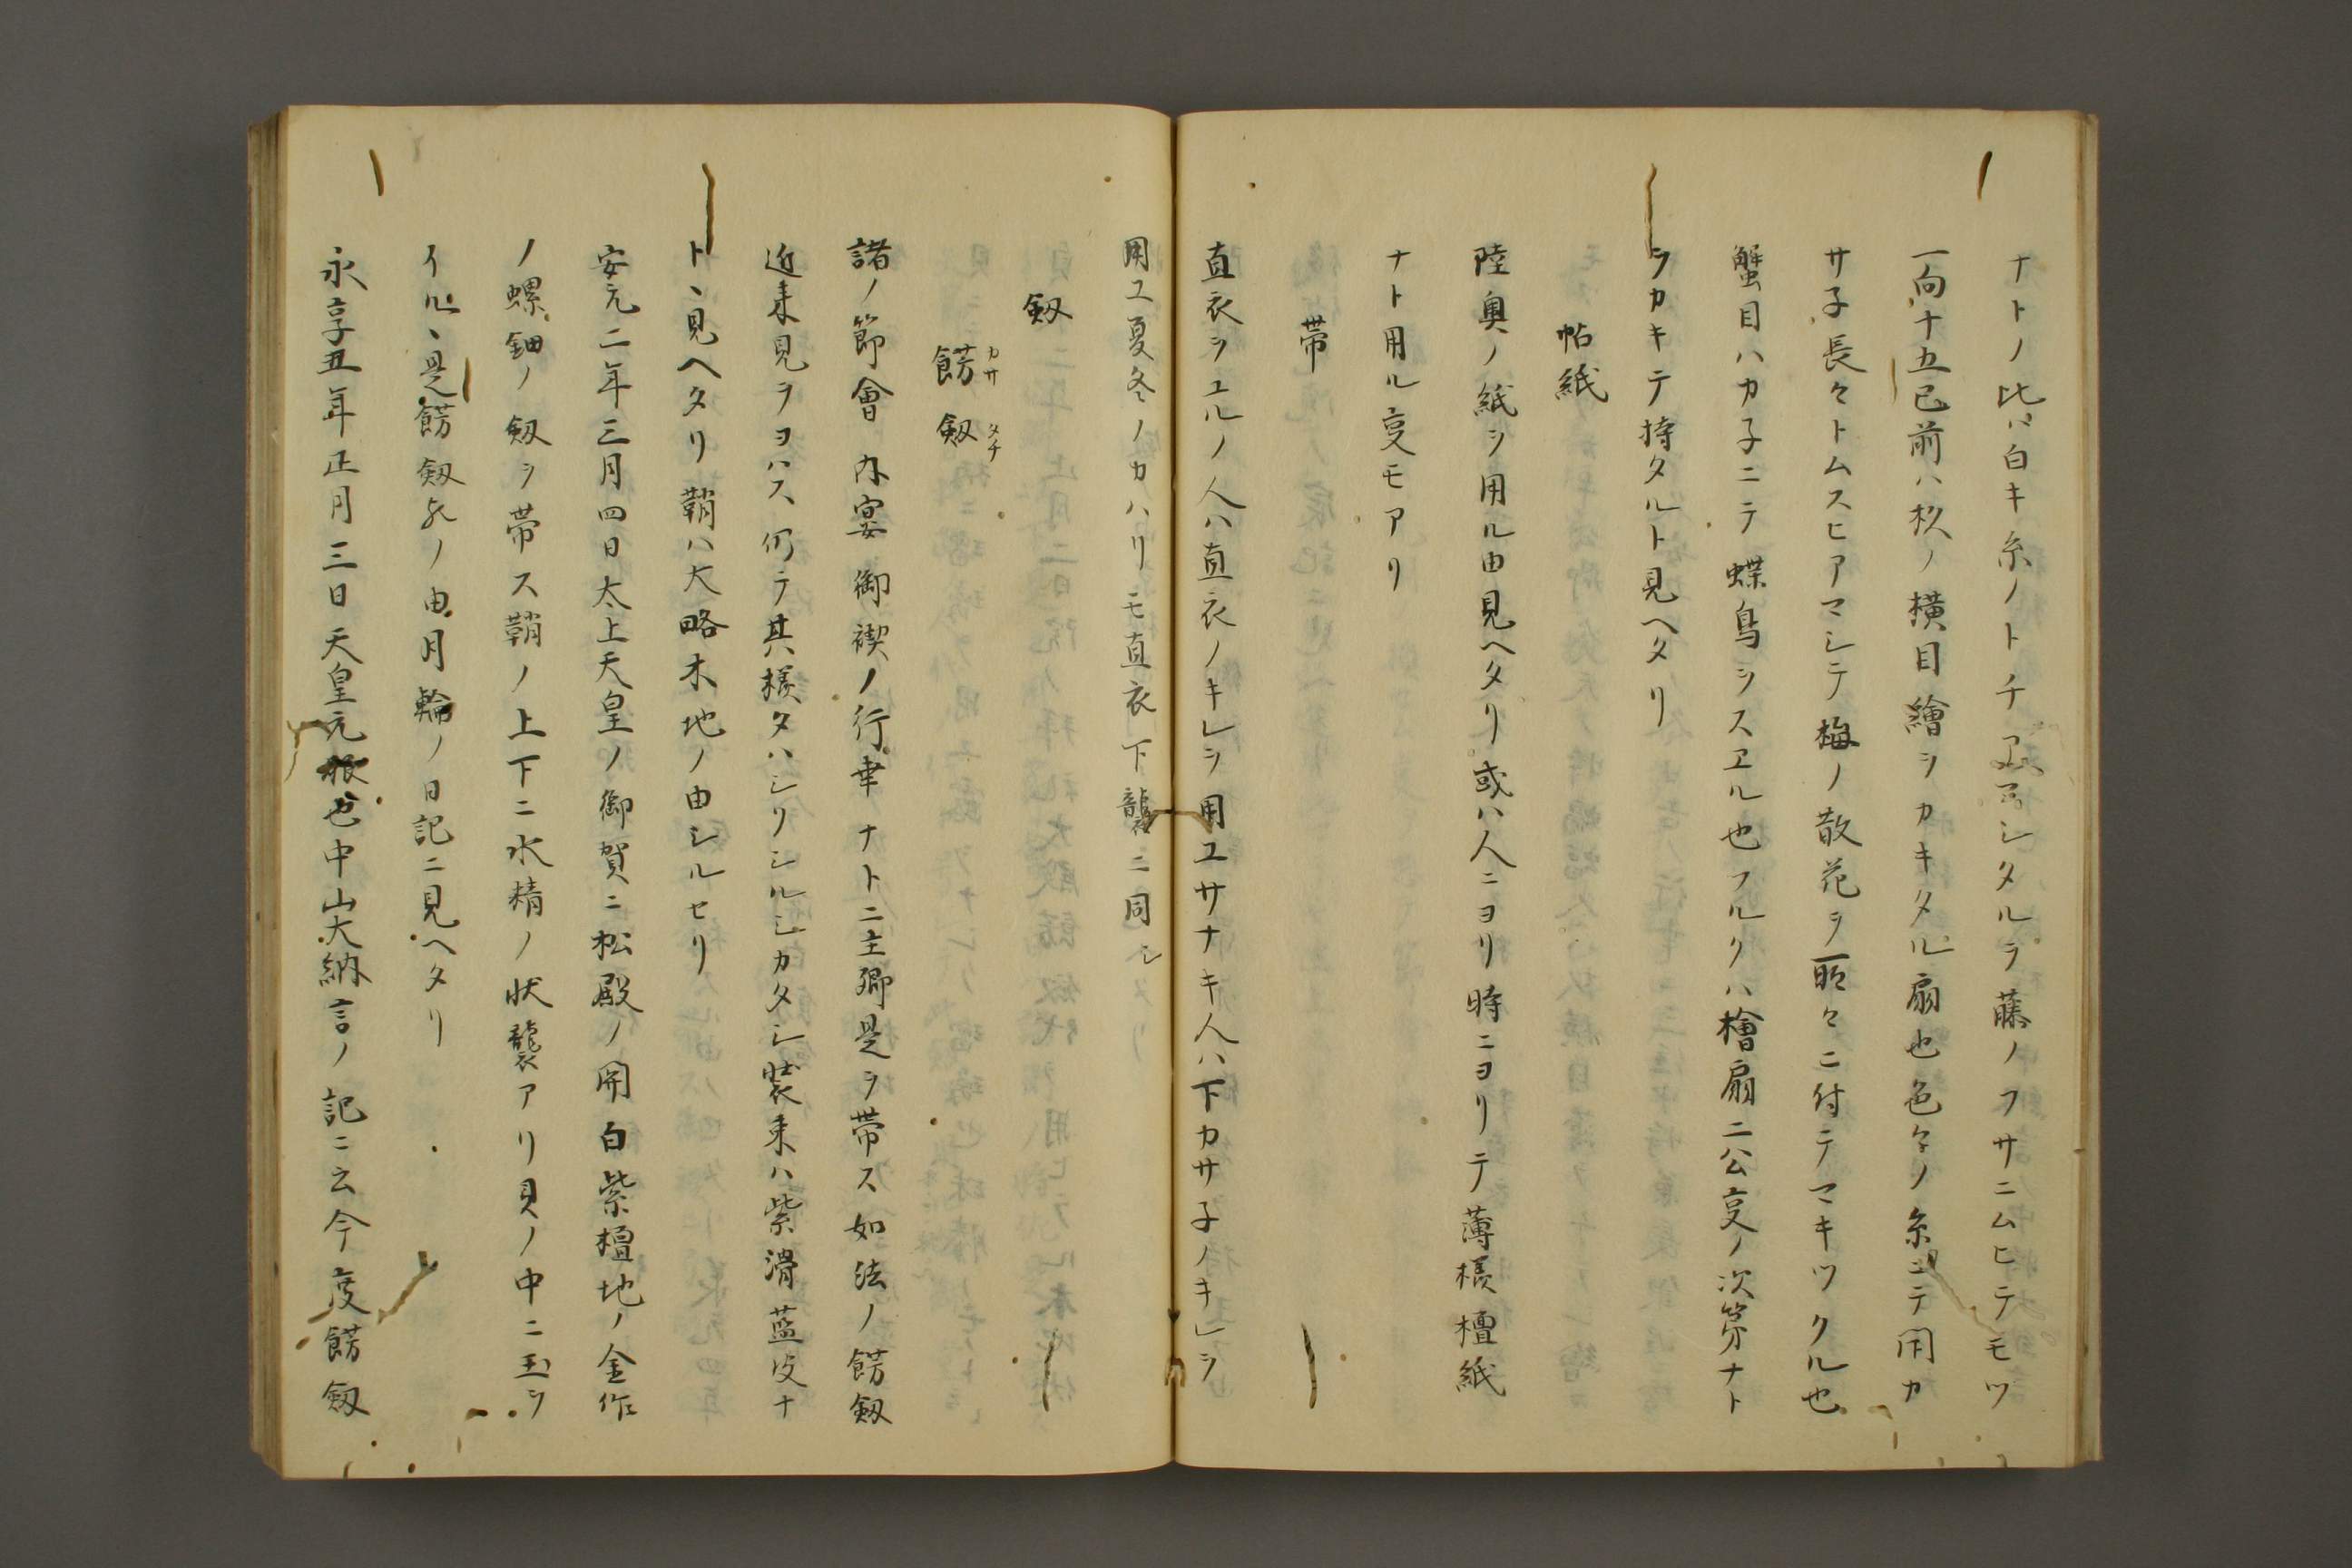 ナトノ比ハ白キ糸ノトチシタルヲ藤ノフサニムヒテモツ
一向十五已前ハ杉ノ横目繪ヲカキタル扇也色々ノ糸ニテ閇カ
サ子長々トムスヒアマシテ梅ノ散花ヲ所々ニ付テマキツクル也
蟹目ハカ子ニテ蝶鳥ヲスヱル也フルクハ檜扇ニ公叓ノ次第ナト
ヲカキテ持タルト見ヘタリ
帖紙
陸奥ノ紙ヲ用ル由見ヘタリ或ハ人ニヨリ時ニヨリテ薄様檀紙
ナト用ル叓モアリ
帯
直衣ヲユルノ人ハ直衣ノキレヲ用ユサナキ人ハ下カサ子ノキレヲ
用ユ夏冬ノカハリモ直衣下襲ニ同シ
劔
餝劔 カサタチ
諸ノ節會内宴御禊ノ行幸ナトニ主卿是ヲ帯ス如法ノ餝劔
近来見ヲヨハス仍テ其様タハシリシルシカタシ装束ハ紫滑藍皮ナ
トヽ見ヘタリ鞘ハ大略木地ノ由シルセリ
安元二年三月四日太上天皇ノ御賀ニ松殿ノ関白紫檀地ノ金作
ノ螺鈿ノ劔ヲ帯ス鞘ノ上下ニ水精ノ状襲アリ貝ノ中ニ玉ヲ
イルヽ是餝劔代ノ由月輪ノ日記ニ見ヘタリ
永享五年正月三日天皇元服也中山大納言ノ記ニ云今度餝劔